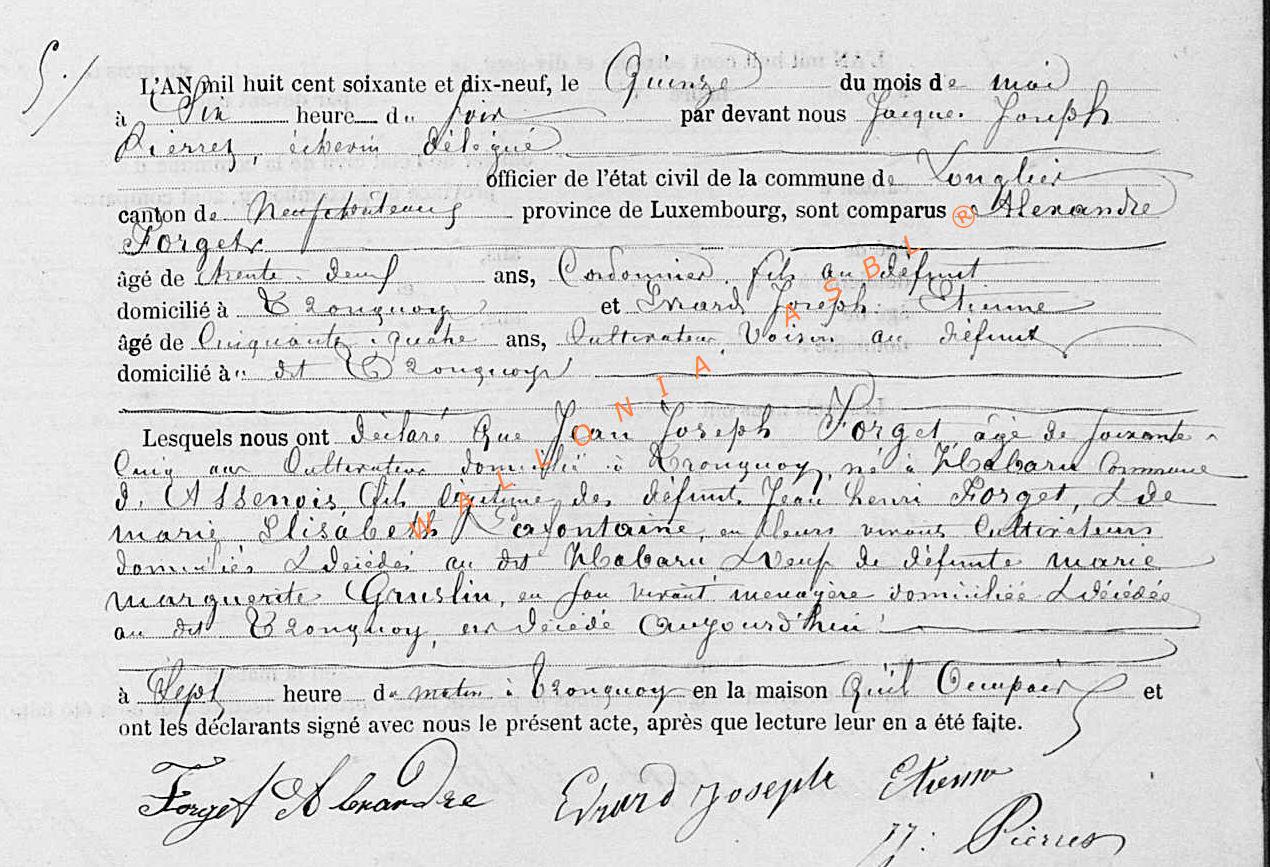 5./
L'AN mil huit cent soixante et dix-neuf, le Quinze du mois de mai
à Six heure du soir par devant nous Jacques Joseph
Pierret, échevin délégué
officier de l'état civil de la commune de Longlier
canton de Neufchâteau province de Luxembourg, sont comparus Alexandre
Forget
âgé de trente-deux ans, Cordonnier, fils au défunt
domicilié à Tronquoy et Evrard Joseph Etienne
âgé de Cinquante-quatre ans, Cultivateur, Voisin au défunt
domicilié à dit Tronquoy
Lesquels nous ont déclaré que Jean Joseph Forget, âgé de soixante-
Cinq ans Cultivateur domicilié à Tronquoy, né à Habaru Commune
d'Assenois, fils légitime des défunts Jean henri Forget, & de
marie Elisabeth Lafontaine, en leurs vivants Cultivateurs
domiciliés & décédés au dit Habaru & veuf de défunte marie
marguerite Gruslin, en son vivant menagère domiciliée & décédée
au dit Tronquoy, est décédé aujourd'hui
à Sept heure du matin à Tronquoy en la maison qu'il Occupait et
ont les déclarants signé avec nous le présent acte, après que lecture leur en a été faite.
Forget Alexandre Evrard Joseph Etienne
JJ. Pierret
WALLONIA ASBL ®